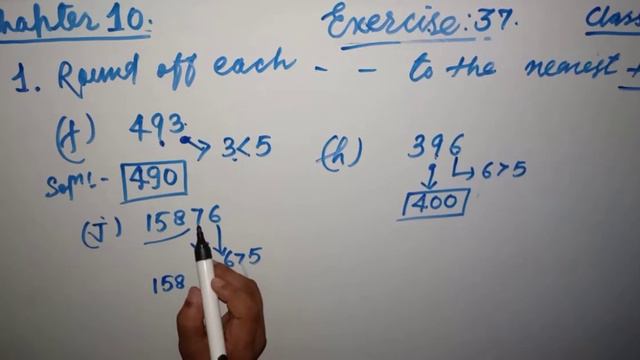 Chapter 10. Exercise: 37. Class
1. Round off each - - to the nearest
(f) 493 → 3<5
490
(h) 396 → 6>5
400
(j) 15876
6>5
158